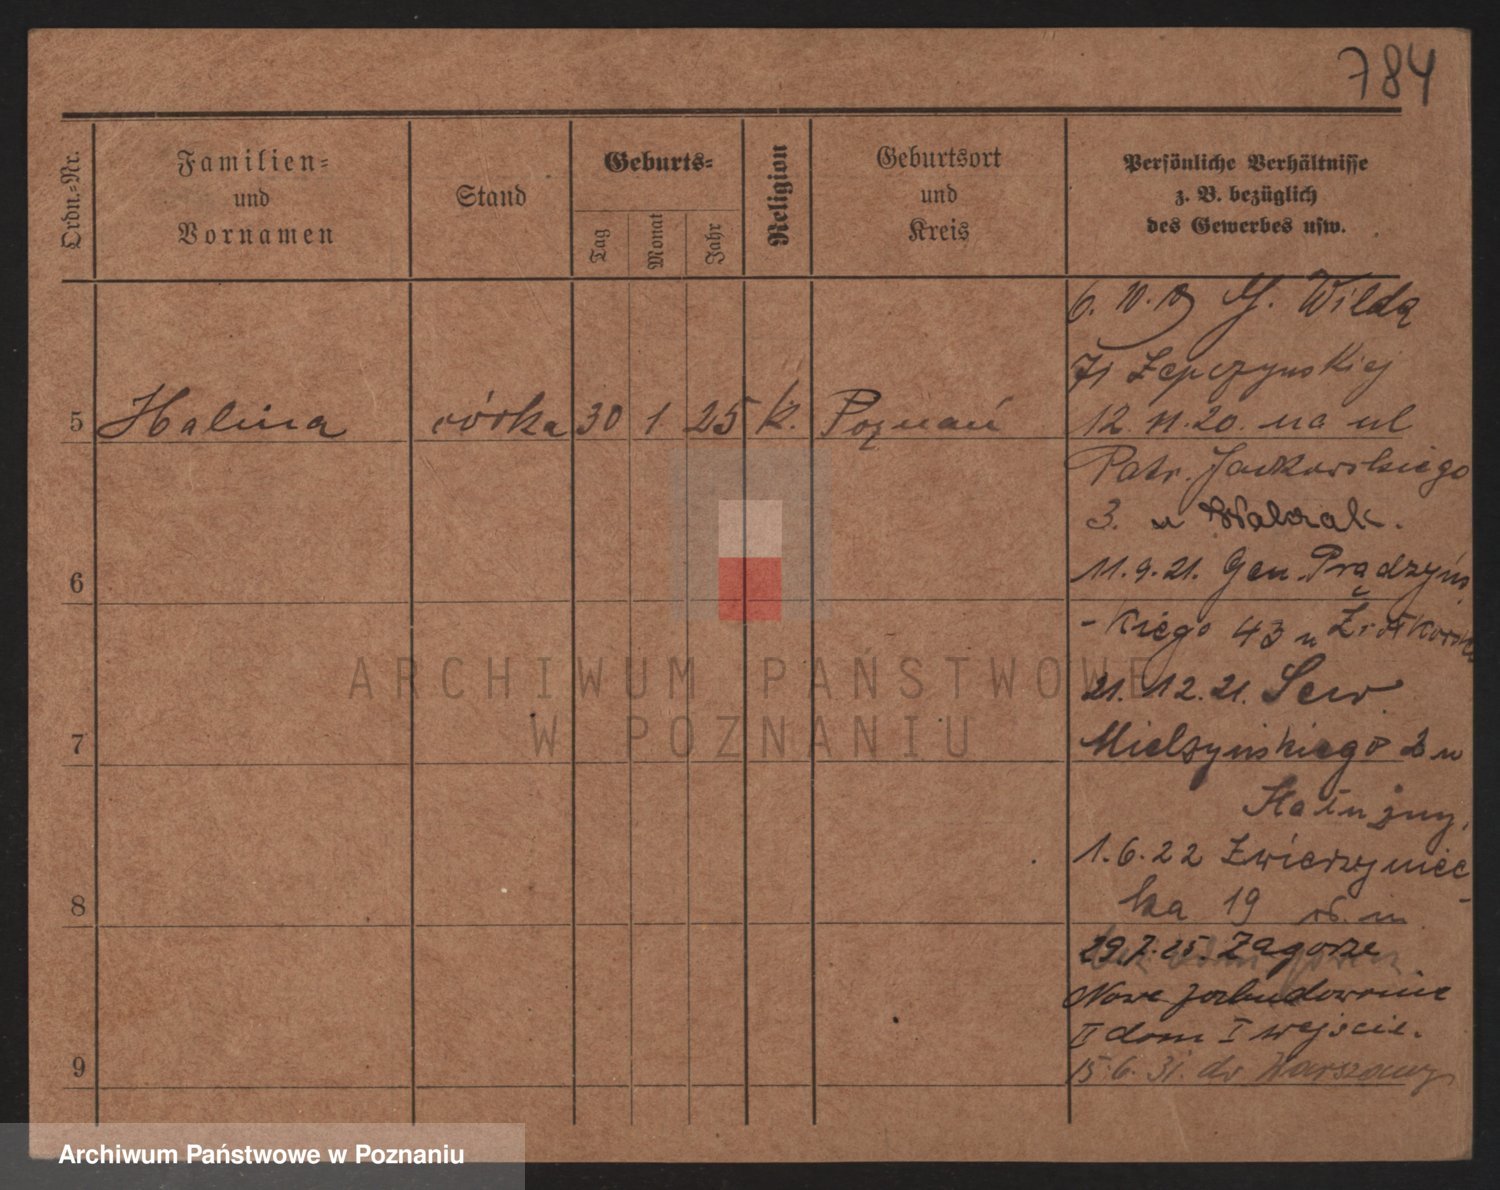 784
Ordn.-Nr.
Familien-
und
Vornamen
Stand
Geburts-
Tag
Monat
Jahr
Religion
Geburtsort
und
Kreis
Persönliche Verhältnisse
z. B. bezüglich
des Gewerbes usw.
6. 10. G. Wilda
71
5 Halina córka 30 1 25 k. Poznań
12. 11. 20. na ul
Patr. Jackowskiego
3. u Walczak.
11. 9. 21. Gen. Prądzyńs
6
-kiego 43 u
21. 12. 21. Sew.
7
Mielżyńskiego 2 u
Kałużny,
1. 6. 22 Zwierzyniec-
8
ka 19
29. 7. 25. Zagorze
Nowe zabudowanie
II dom I wejście.
9
15. 6. 31. do Warszawy
ARCHIWUM PAŃSTWOWE
W POZNANIU
Archiwum Państwowe w Poznaniu